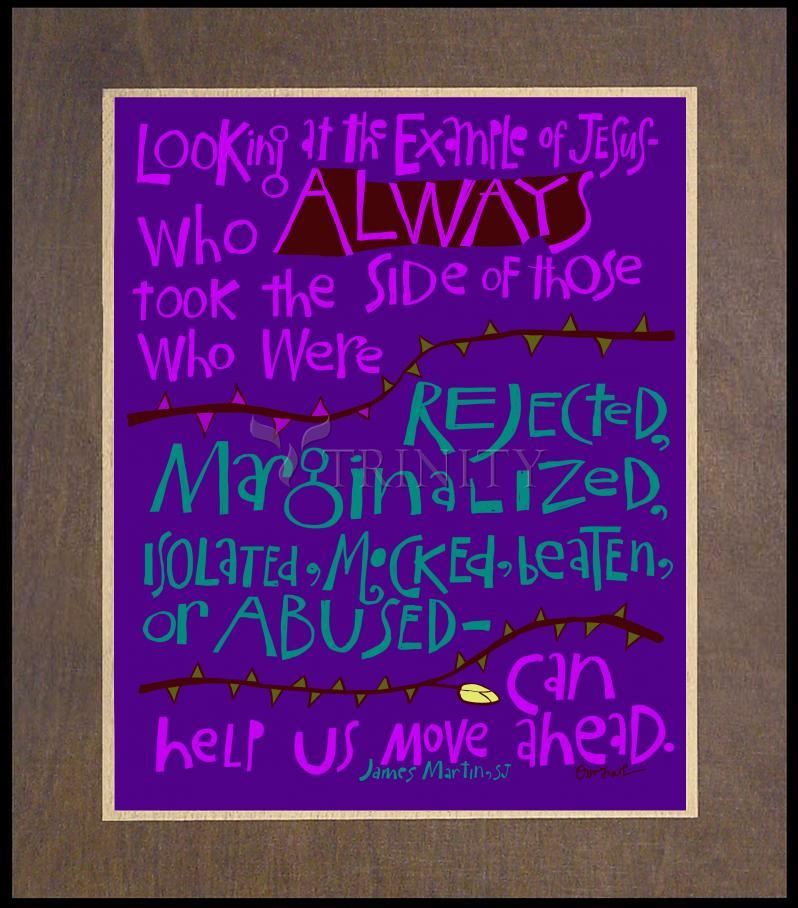 Looking at the Example of Jesus-
Who ALWAYS
took the Side of those
Who Were
Rejected,
Marginalized,
TRINITY
Isolated, Mocked, beaten,
or ABUSED-
Can
help us move ahead.
James Martin, SJ